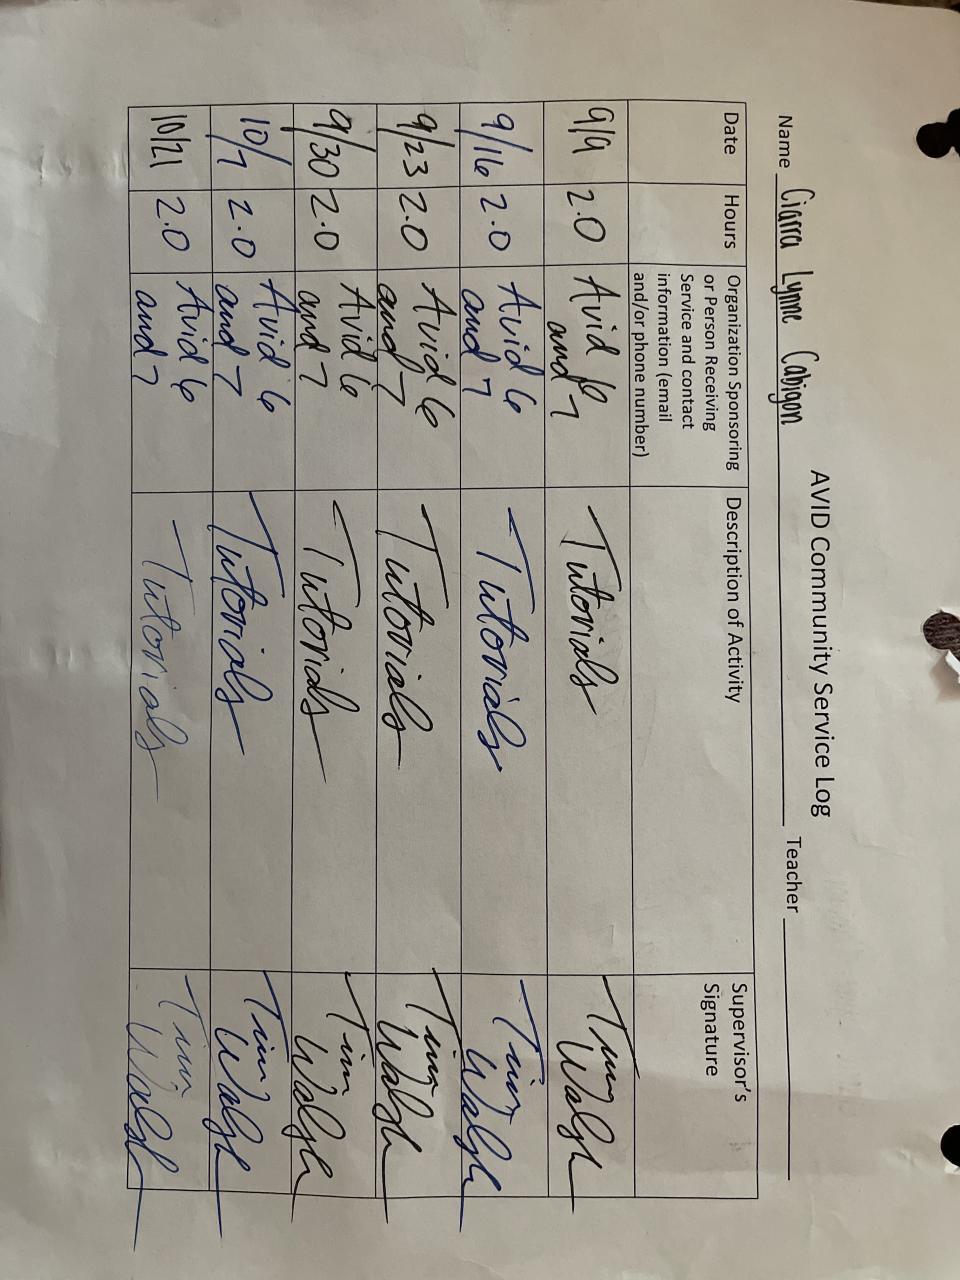 AVID Community Service Log
Name Ciarra Lynne Cabigon Teacher
Date
Hours
Organization Sponsoring
or Person Receiving
Service and contact
information (email
and/or phone number)
Description of Activity
Supervisor's
Signature
9/9 2.0 Avid 6 Tutorials Tim
and 7 Walsh
9/16 2.0 Avid 6 Tutorials Tim
and 7 Walsh
9/23 2.0 Avid 6 Tutorials Tim
and 7 Walsh
9/30 2.0 Avid 6 Tutorials Tim
and 7 Walsh
10/7 2.0 Avid 6 Tutorials Tim
and 7 Walsh
10/21 2.0 Avid 6 Tutorials Tim
and 7 Walsh